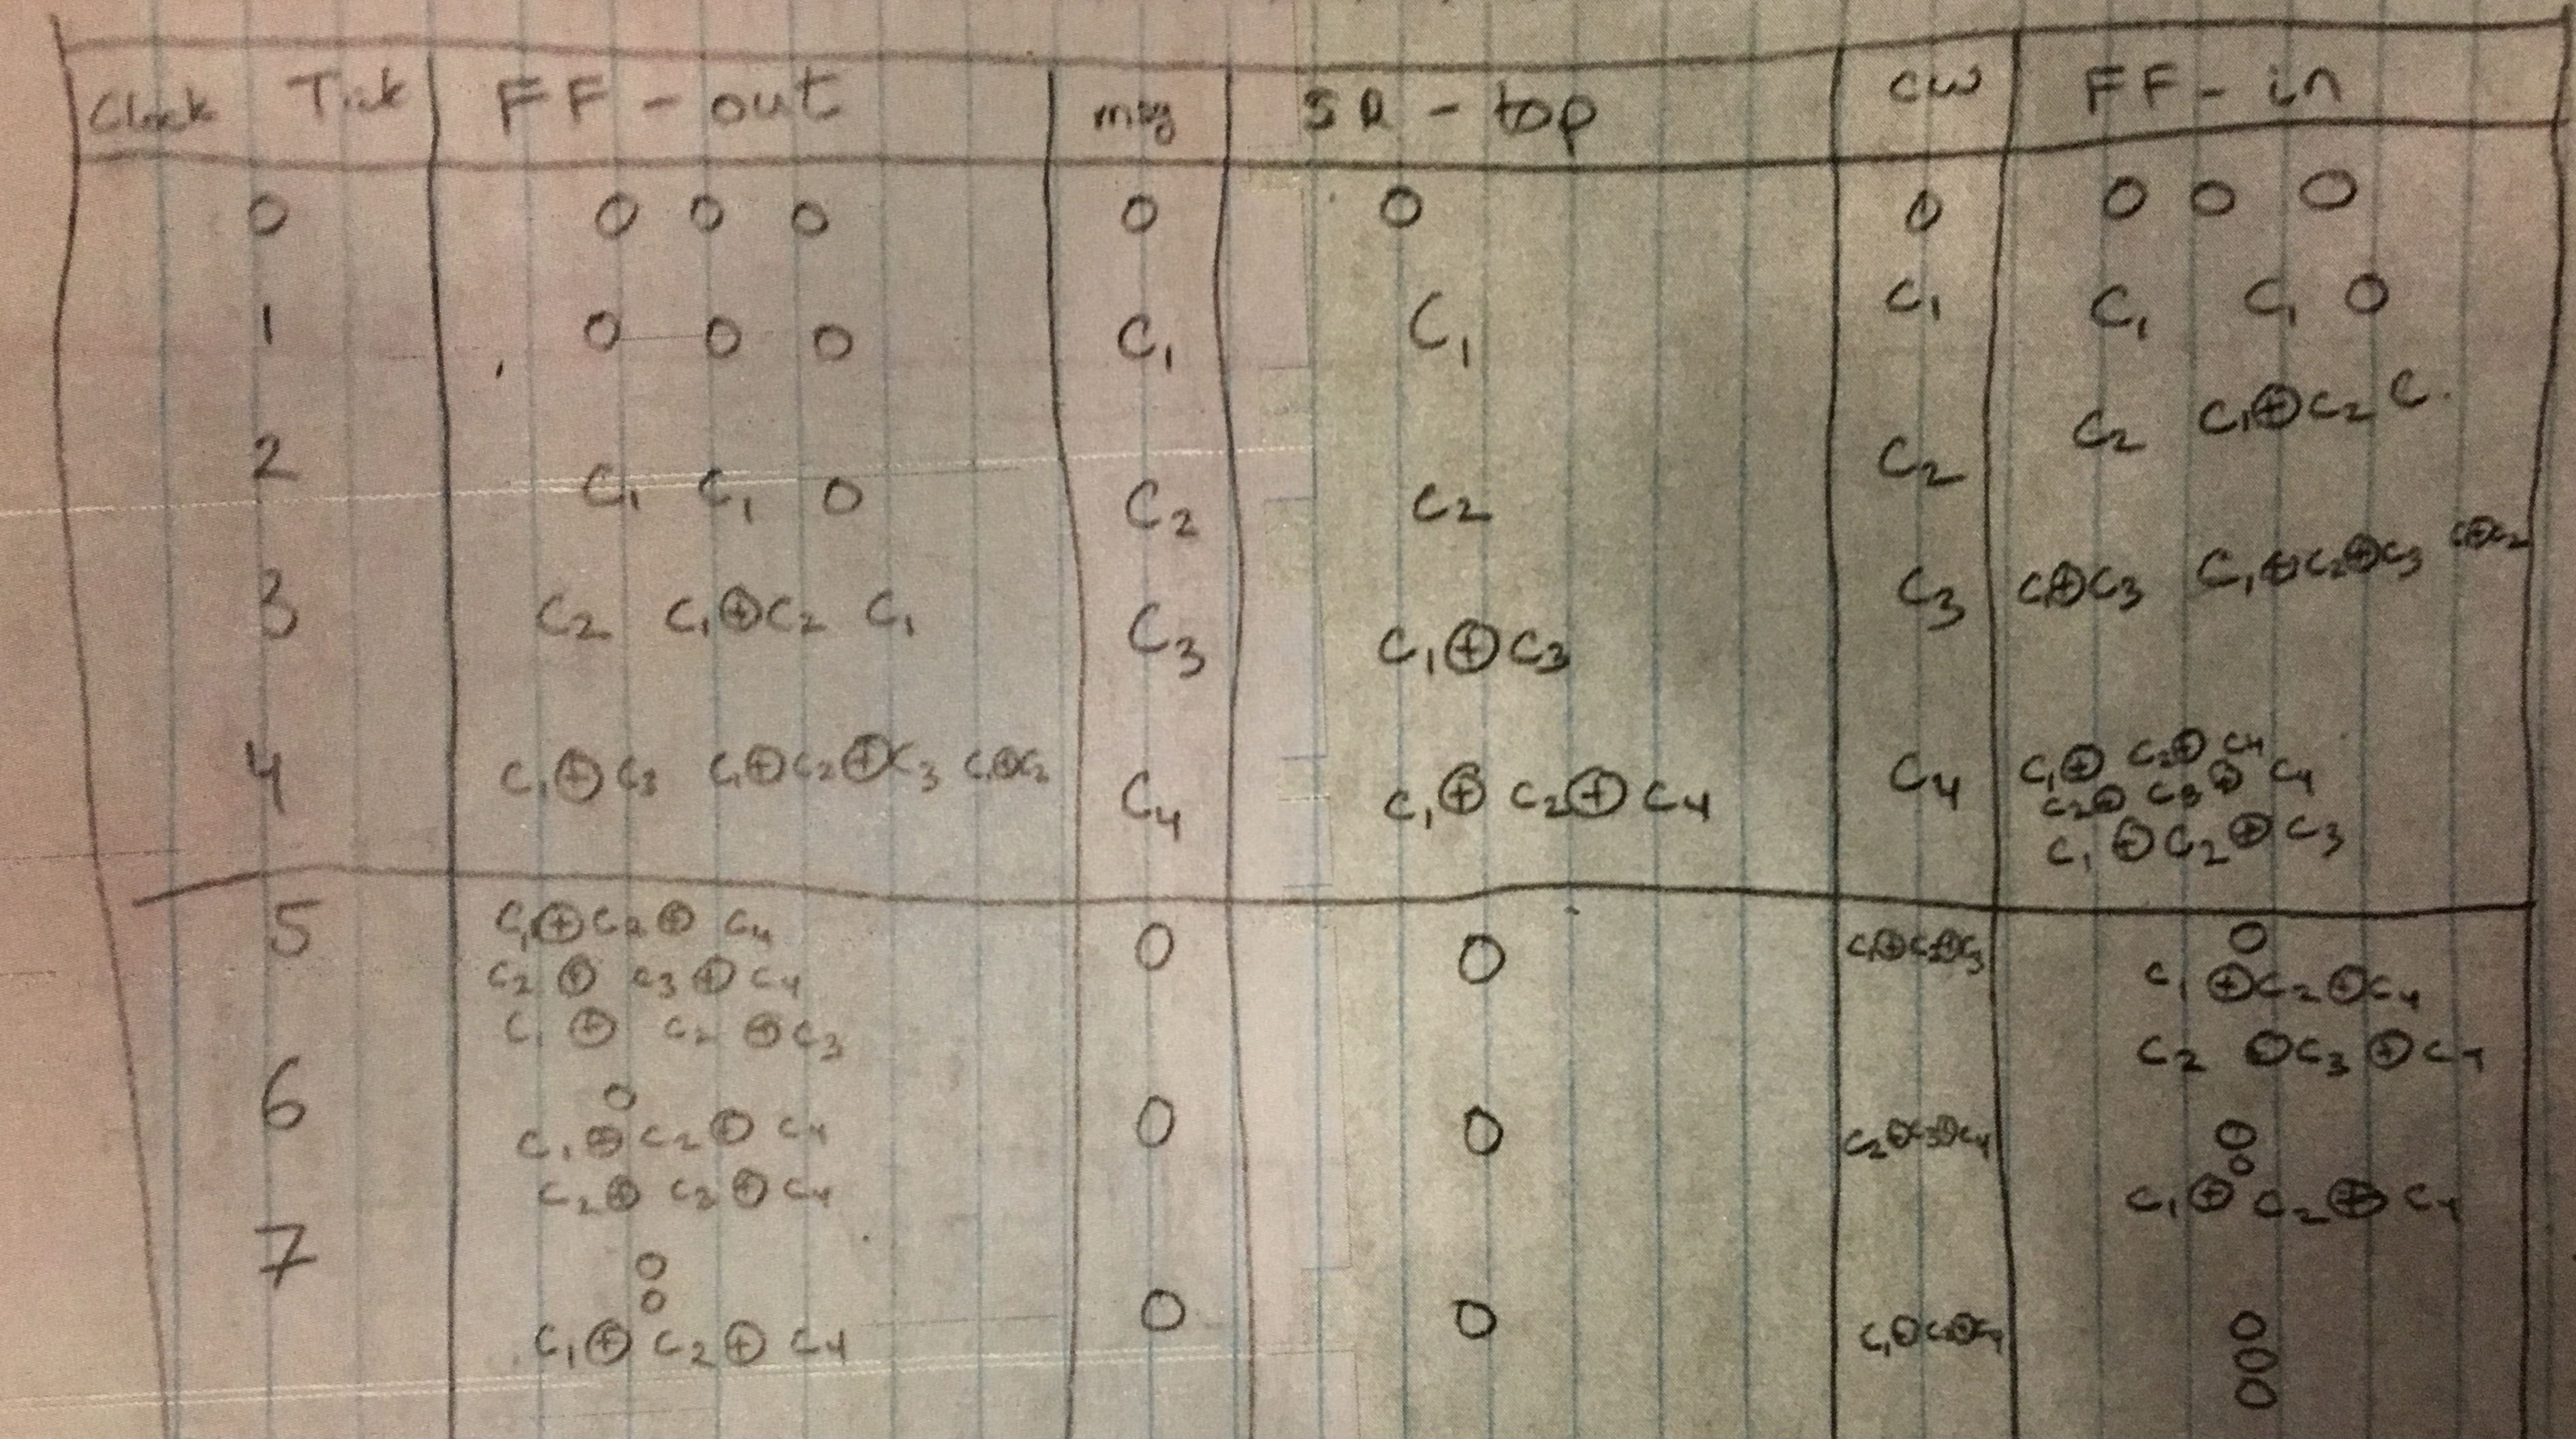 Clock Tick FF - out msg SR - top cw FF - in
0 0 0 0 0 0 0 0 0 0
1 0 0 0 C₁ C₁ C₁ C₁ C₁ 0
2 C₁ C₁ 0 C₂ C₂ C₂ C₂ C₁⊕C₂ C.
3 C₂ C₁⊕C₂ C₁ C₃ C₁⊕C₃ C₃ C₁⊕C₃ C₁⊕C₂⊕C₃ C₁⊕C₂
4 C₁⊕C₃ C₁⊕C₂⊕C₃ C₁⊕C₂ C₄ C₁⊕C₂⊕C₄ C₄ C₁⊕C₂⊕C₄
C₂⊕C₃⊕C₄
C₁⊕C₂⊕C₃
5 C₁⊕C₂⊕C₄ 0 0 C₁⊕C₂⊕C₃ 0
C₂⊕C₃⊕C₄ C₁⊕C₂⊕C₄
C₁⊕C₂⊕C₃ C₂⊕C₃⊕C₄
6 0 0 0 C₂⊕C₃⊕C₄ 0
C₁⊕C₂⊕C₄ 0
C₂⊕C₃⊕C₄ C₁⊕C₂⊕C₄
7 0 0 0 C₁⊕C₂⊕C₄ 0
0 0
C₁⊕C₂⊕C₄ 0